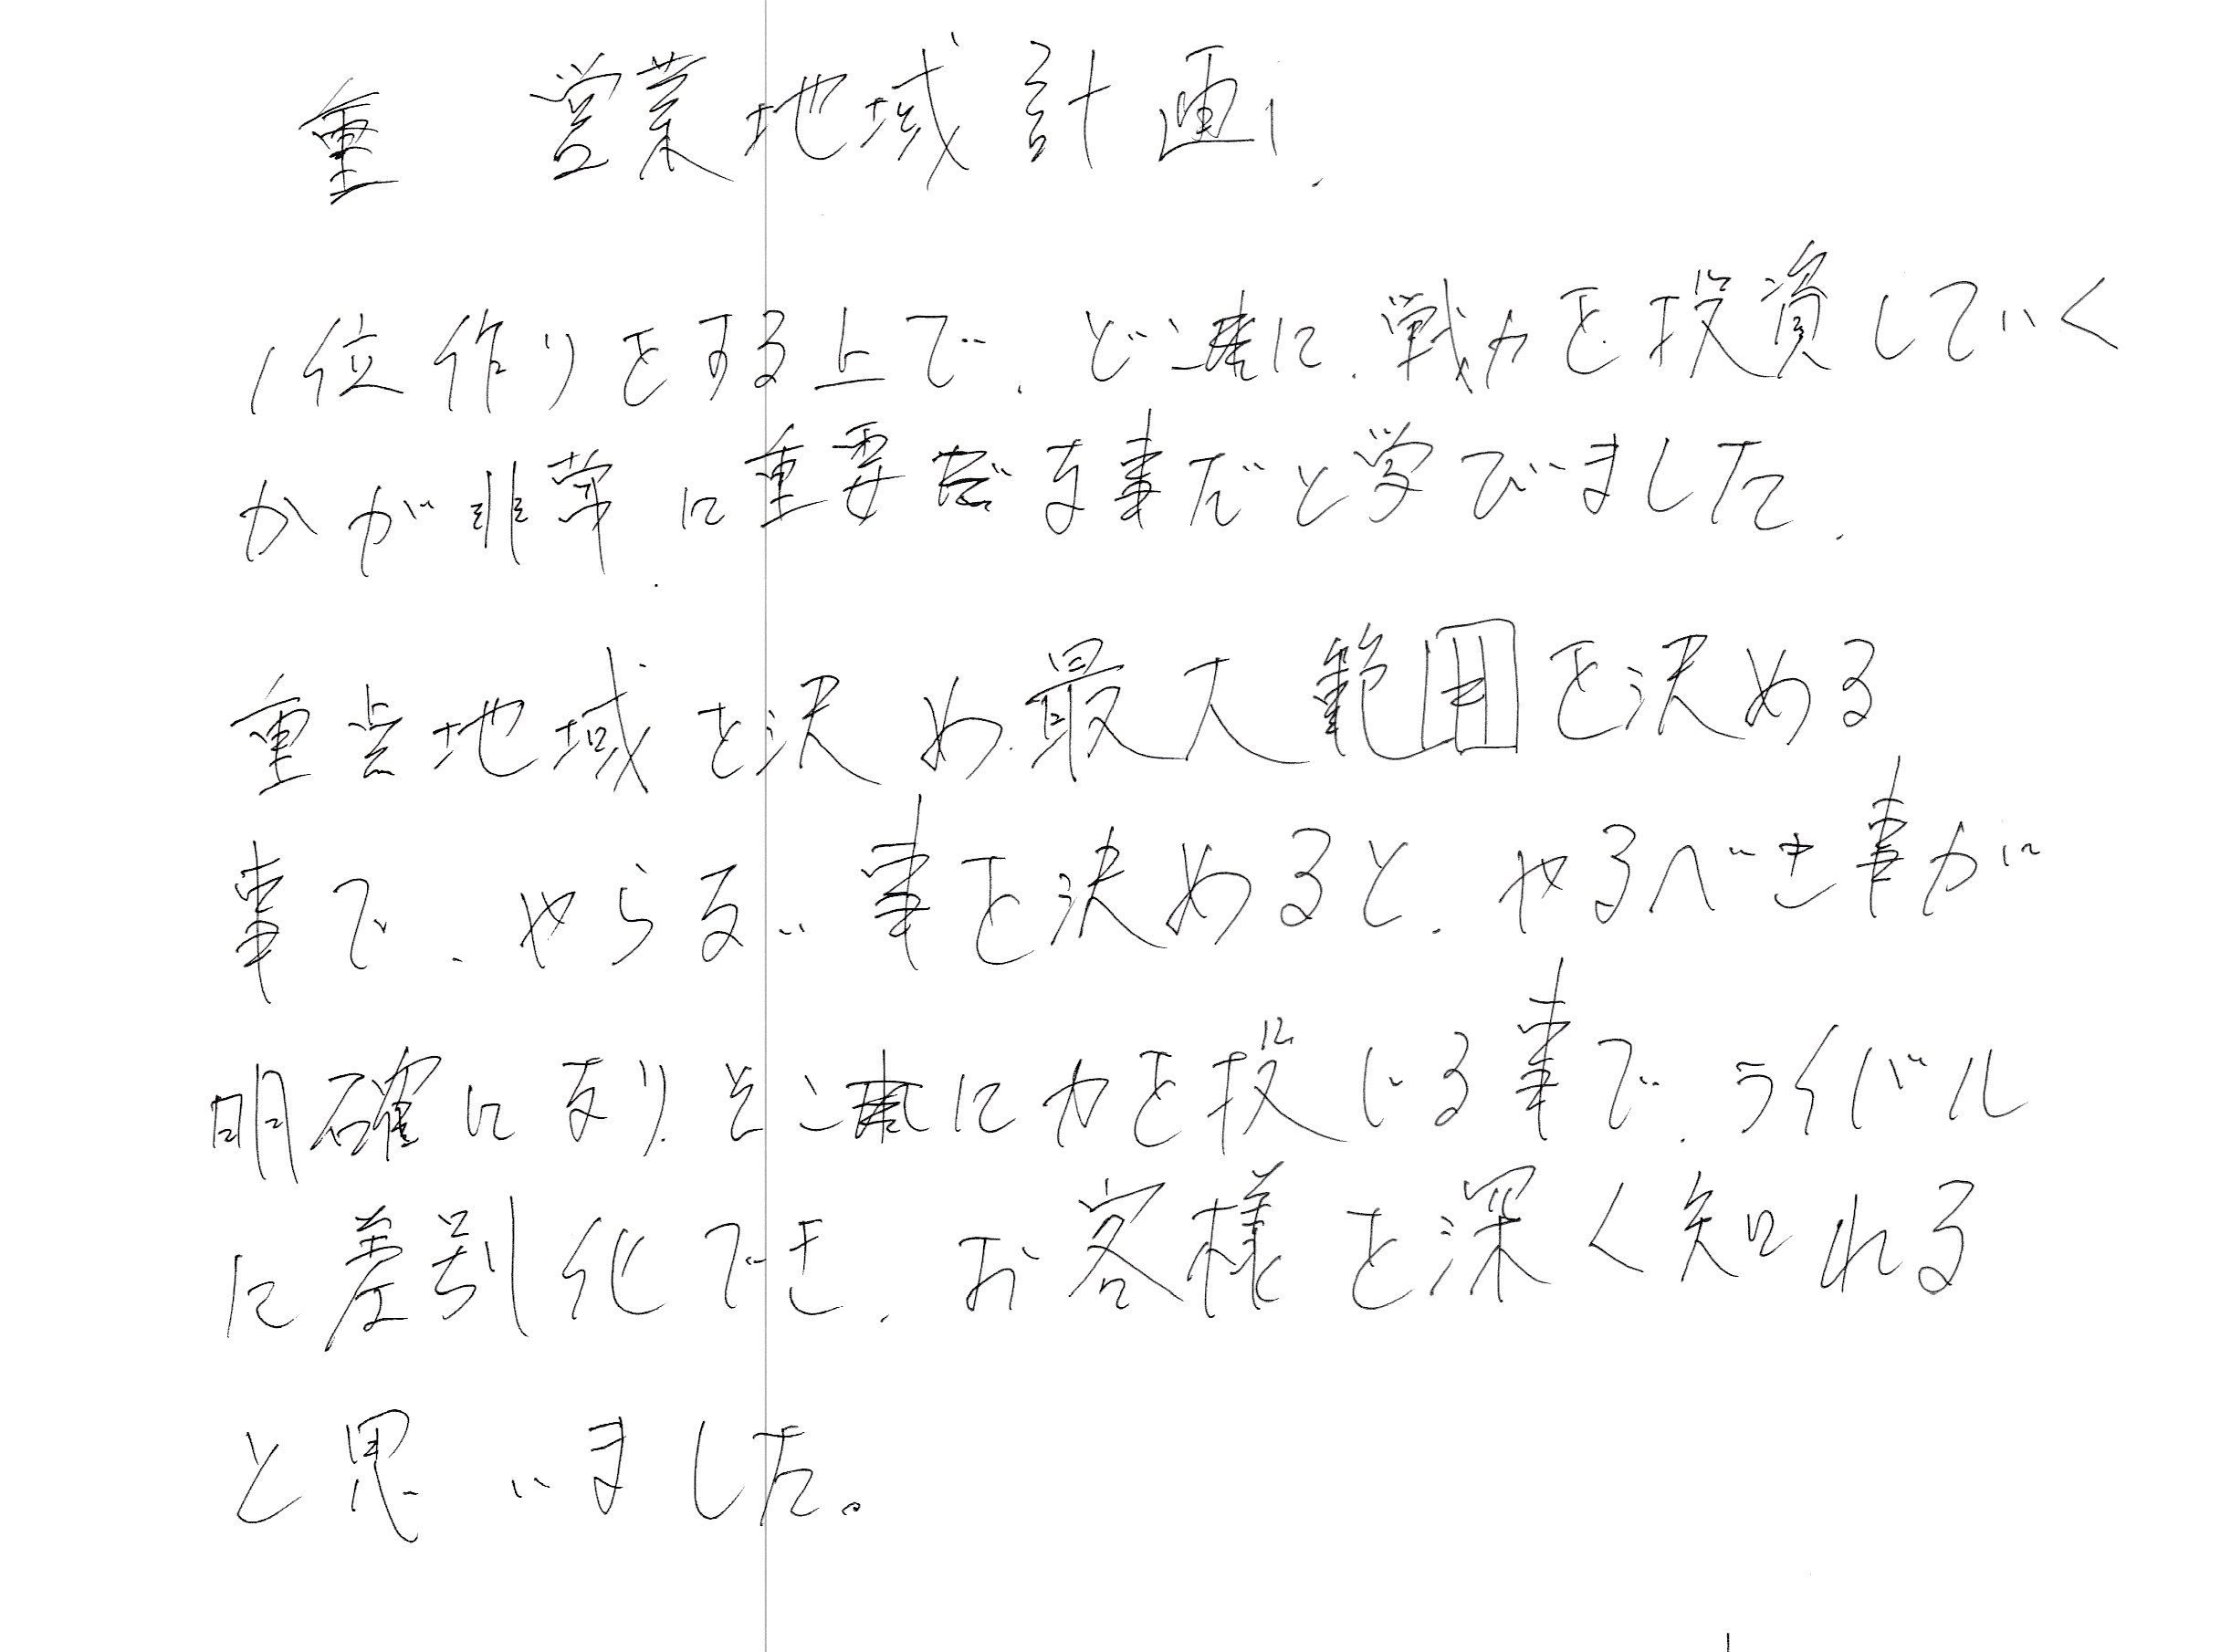 重 営業地域計画
1位作りをする上で、どこに、戦力を投資していく
かが非常に重要な事だと学びました。
重点地域を決め、最大範囲を決める
事で、やらない事を決めると、やるべき事が
明確になり、そこに力を投じる事で、ライバル
に差別化でき、お客様を深く知れる
と思いました。